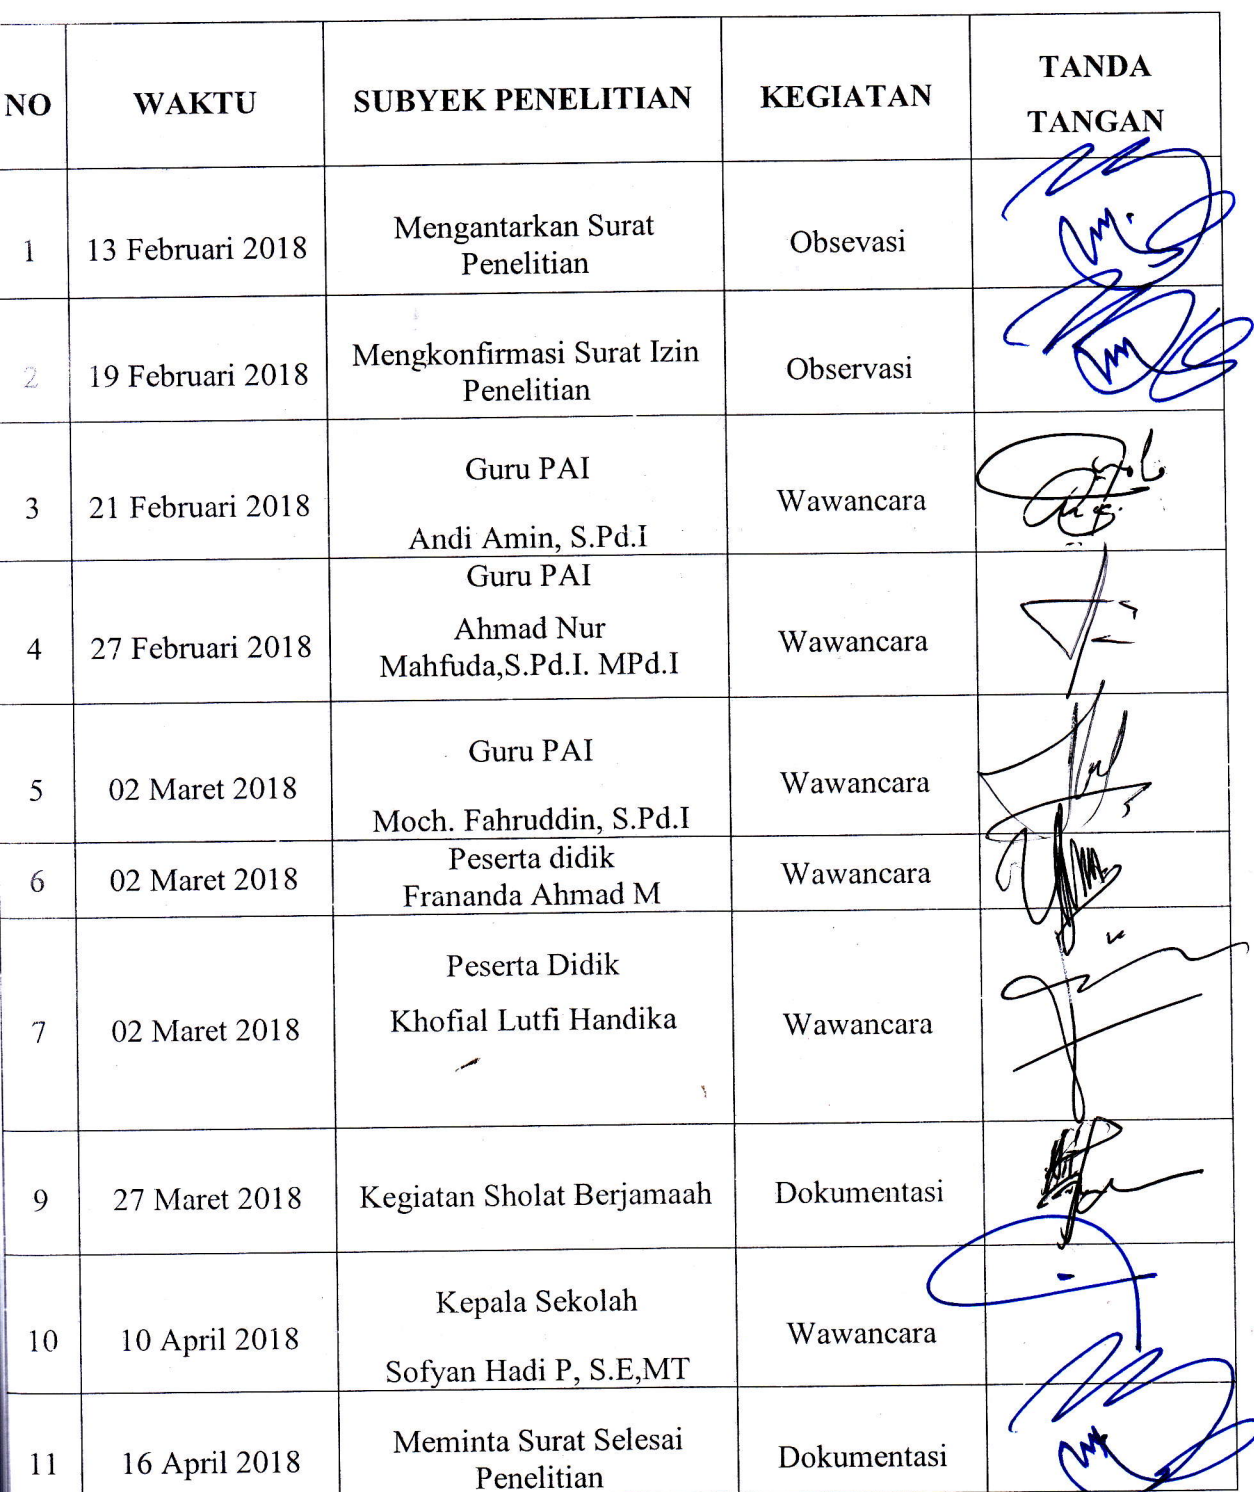 NO WAKTU SUBYEK PENELITIAN KEGIATAN TANDA
TANGAN
1 13 Februari 2018 Mengantarkan Surat
Penelitian Obsevasi
2 19 Februari 2018 Mengkonfirmasi Surat Izin
Penelitian Observasi
3 21 Februari 2018 Guru PAI
Andi Amin, S.Pd.I Wawancara
4 27 Februari 2018 Guru PAI
Ahmad Nur
Mahfuda,S.Pd.I. MPd.I Wawancara
5 02 Maret 2018 Guru PAI
Moch. Fahruddin, S.Pd.I Wawancara
6 02 Maret 2018 Peserta didik
Frananda Ahmad M Wawancara
7 02 Maret 2018 Peserta Didik
Khofial Lutfi Handika Wawancara
9 27 Maret 2018 Kegiatan Sholat Berjamaah Dokumentasi
10 10 April 2018 Kepala Sekolah
Sofyan Hadi P, S.E,MT Wawancara
11 16 April 2018 Meminta Surat Selesai
Penelitian Dokumentasi